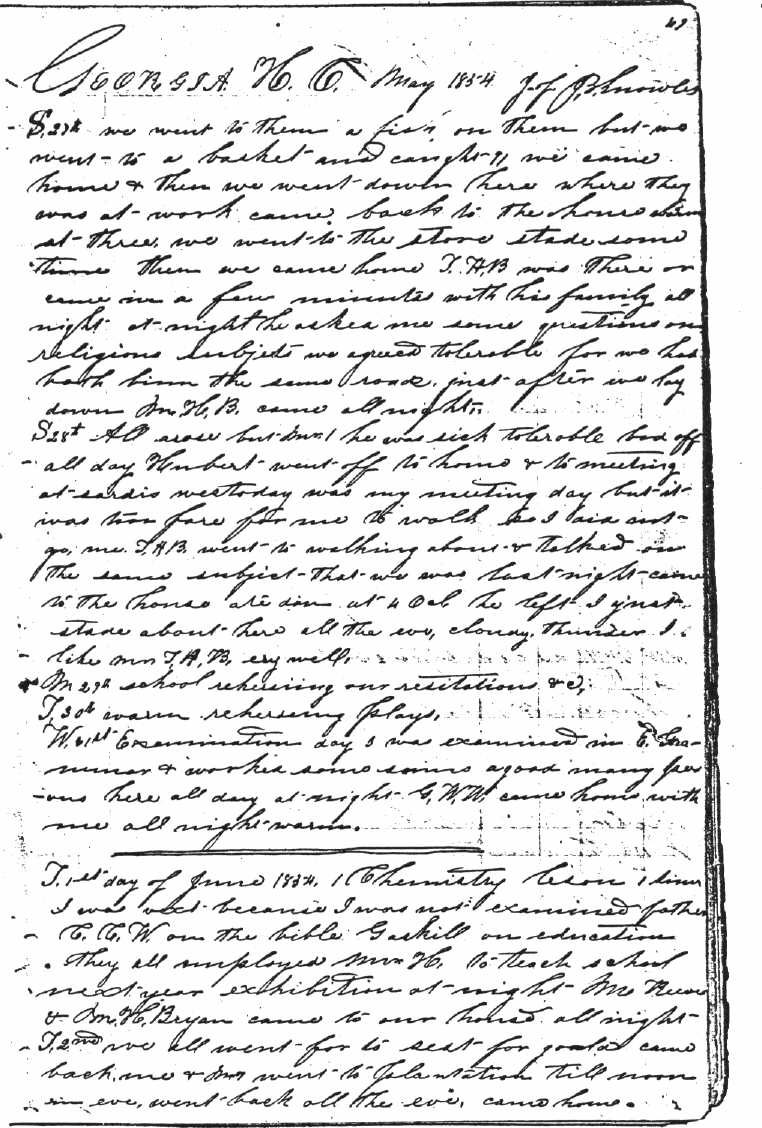 49
GEORGIA. H. C. May 1854 J. of J. B. Knowles
S, 27th we went to them a fish on them but no
went to a basket and caught 91 we came
home & then we went down here where they
was at work came back to the house
at three. we went to the store stade some
time then we came home J. A, B was there or
came in a few minuts with his family all
night at night he asked me some questions on
religious subjets we agreed tolerable for we had
both binn the same road. just after we lay
down M, H, B. came all night,
S 28th All arose but Mr he was sick tolerable bad off
all day Hubert went off to home & to meeting
at sardis westoday was my meeting day but it
was too fare for me to walk so I did not
go, me J A B. went to walking about & talked on
the same subject that we was last night came
to the house ate din at 4 Oclo he left I just
stade about here all the eve, cloudy, thunder I
like Mr J, A, B, ery well.
M 29th school rehersing our resitations &c,
T, 30th warm rehersing plays,
W. 31st Examination day I was examined in E. Gra-
mmar & worked some soms a good many pers
ons here all day at night G, W, W, came home with
me all night warm.
T. 1st day of June 1854. 1 Chemistry leson 1 time
I was vext because I was not examined father
C. C. W on the bible Gaskill on education
they all employed Mr H. to teach school
next year exhibition at night Mc Reeve
& M, H, Bryan came to our house all night
T, 2nd we all went for to seat for goala came
back, me & Mr went to plantation till noon
in eve, went back all the eve, came home.